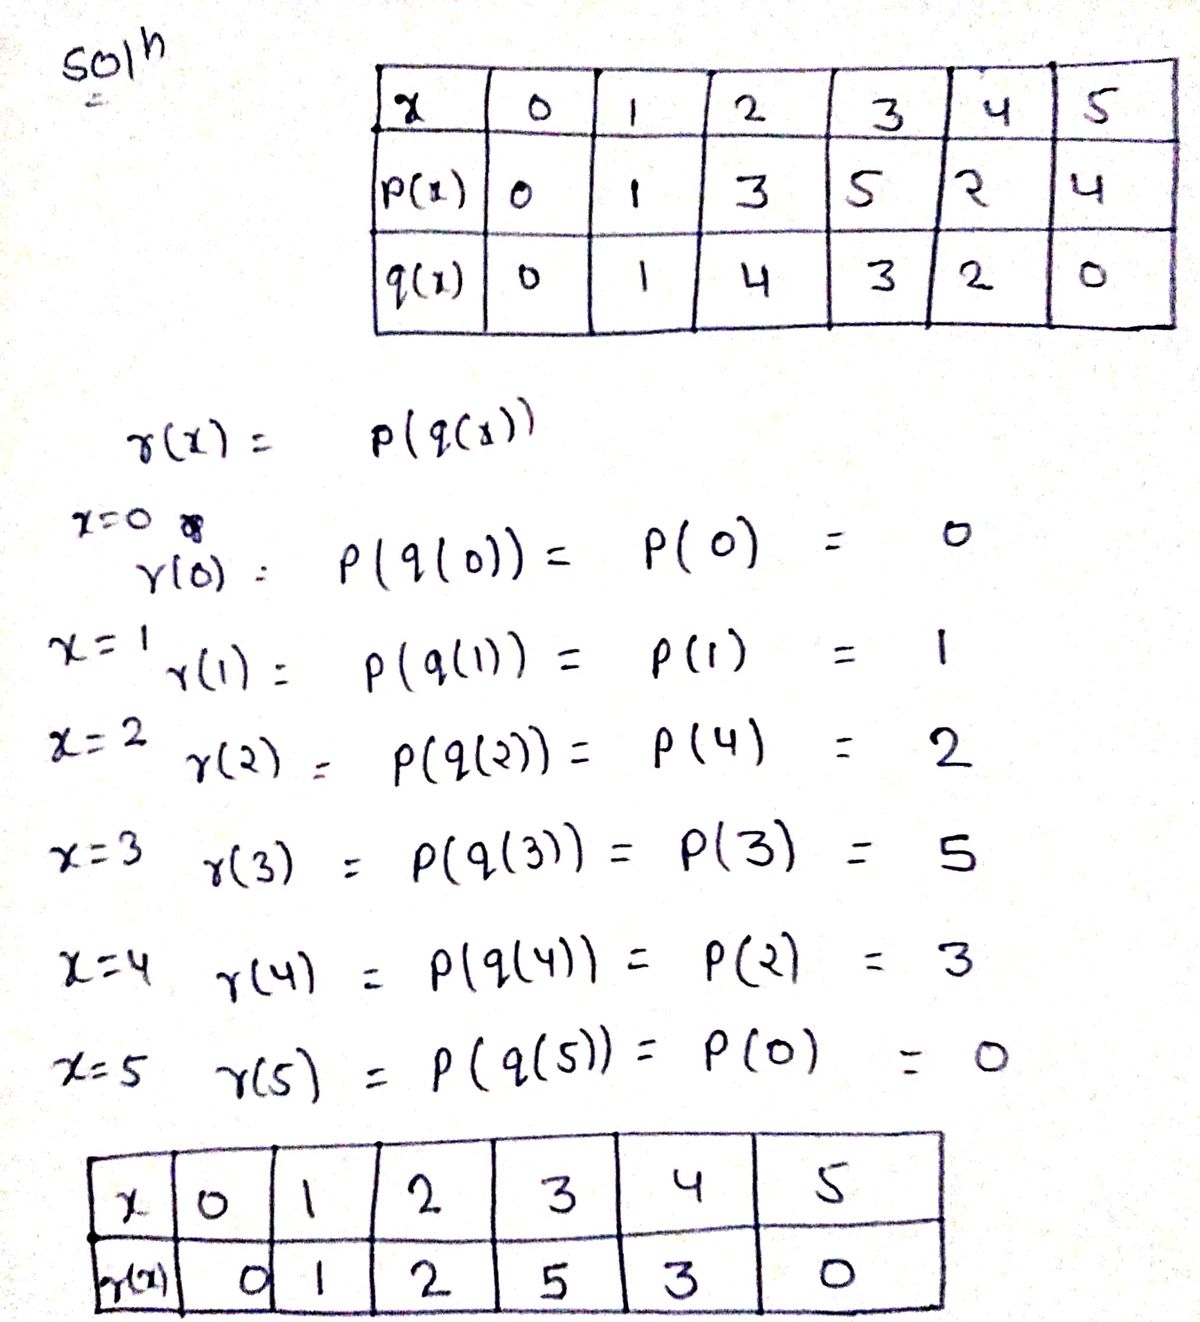 Soln
x 0 1 2 3 4 5
p(x) 0 1 3 5 2 4
q(x) 0 1 4 3 2 0
r(x) = p(q(x))
x=0
r(0) = p(q(0)) = p(0) = 0
x=1 r(1) = p(q(1)) = p(1) = 1
x=2 r(2) = p(q(2)) = p(4) = 2
x=3 r(3) = p(q(3)) = p(3) = 5
x=4 r(4) = p(q(4)) = p(2) = 3
x=5 r(5) = p(q(5)) = p(0) = 0
x 0 1 2 3 4 5
r(x) 0 1 2 5 3 0